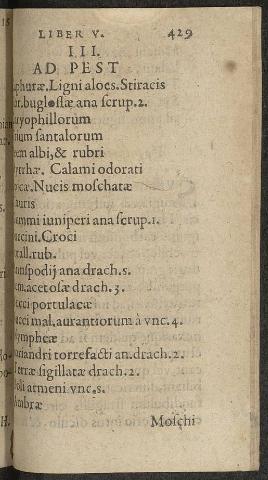 LIBER V. 429
III.
AD PEST
phuræ. Ligni aloes. Stiracis
bugloſſæ ana ſcrup. 2.
ryophillorum
ſantalorum
albi, & rubri
yrrhæ. Calami odorati
Nucis moſchatæ
auris
mmi iuniperi ana ſcrup. 1.
ccini. Croci
rall. rub.
ſpodij ana drach. s.
m. acetoſæ drach. 3.
cci portulacæ
cci mal. aurantiorum à vnc. 4.
ymphææ
riandri torrefacti an. drach. 2.
erræ ſigillatæ drach. 2.
oli armeni vnc. s.
mbræ
Moſchi